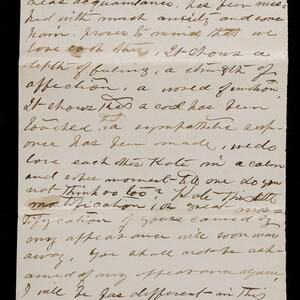 dear acquaintance, has been mee-
ked with most anxiety and some
pain. Proves to mind that we
love each other. It shows a
depth of feeling, a strength of
affection, a world of
It shows that a cord has been
touched, that a sympathetic resp-
onse has been made, we do
love each other Kate in a calm
and sober moment
not think so too? Kate this little
mortification, the great mor-
tification of yours caused by
my appearance will soon wear
away. You shall not be ash-
amed of my appearance again,
I will be far different in this